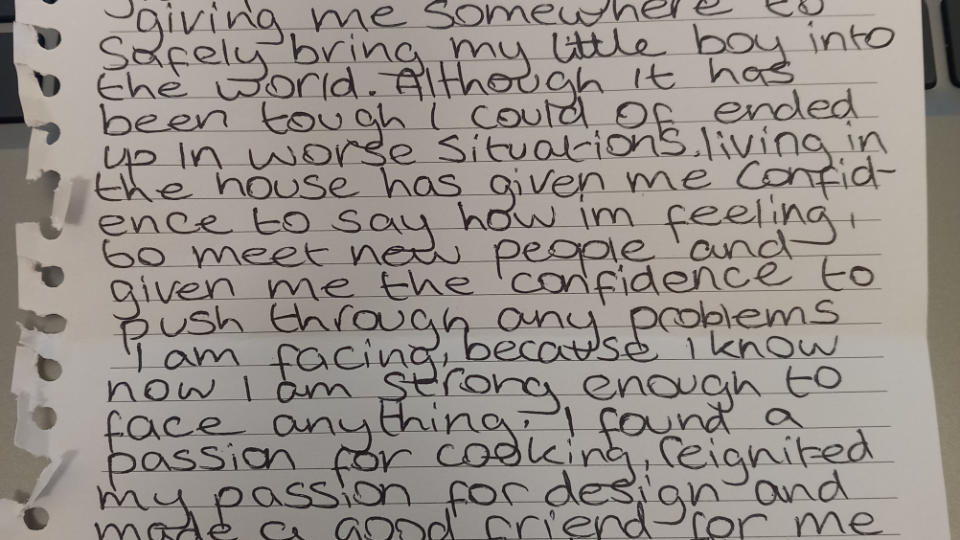 giving me somewhere to
Safely bring my little boy into
the world. Although it has
been tough I could of ended
up in worse situations. living in
the house has given me confid-
ence to say how im feeling,
to meet new people and
given me the confidence to
push through any problems
I am facing, because I know
now I am strong enough to
face anything. I found a
passion for cooking, reignited
my passion for design and
made a good friend for me